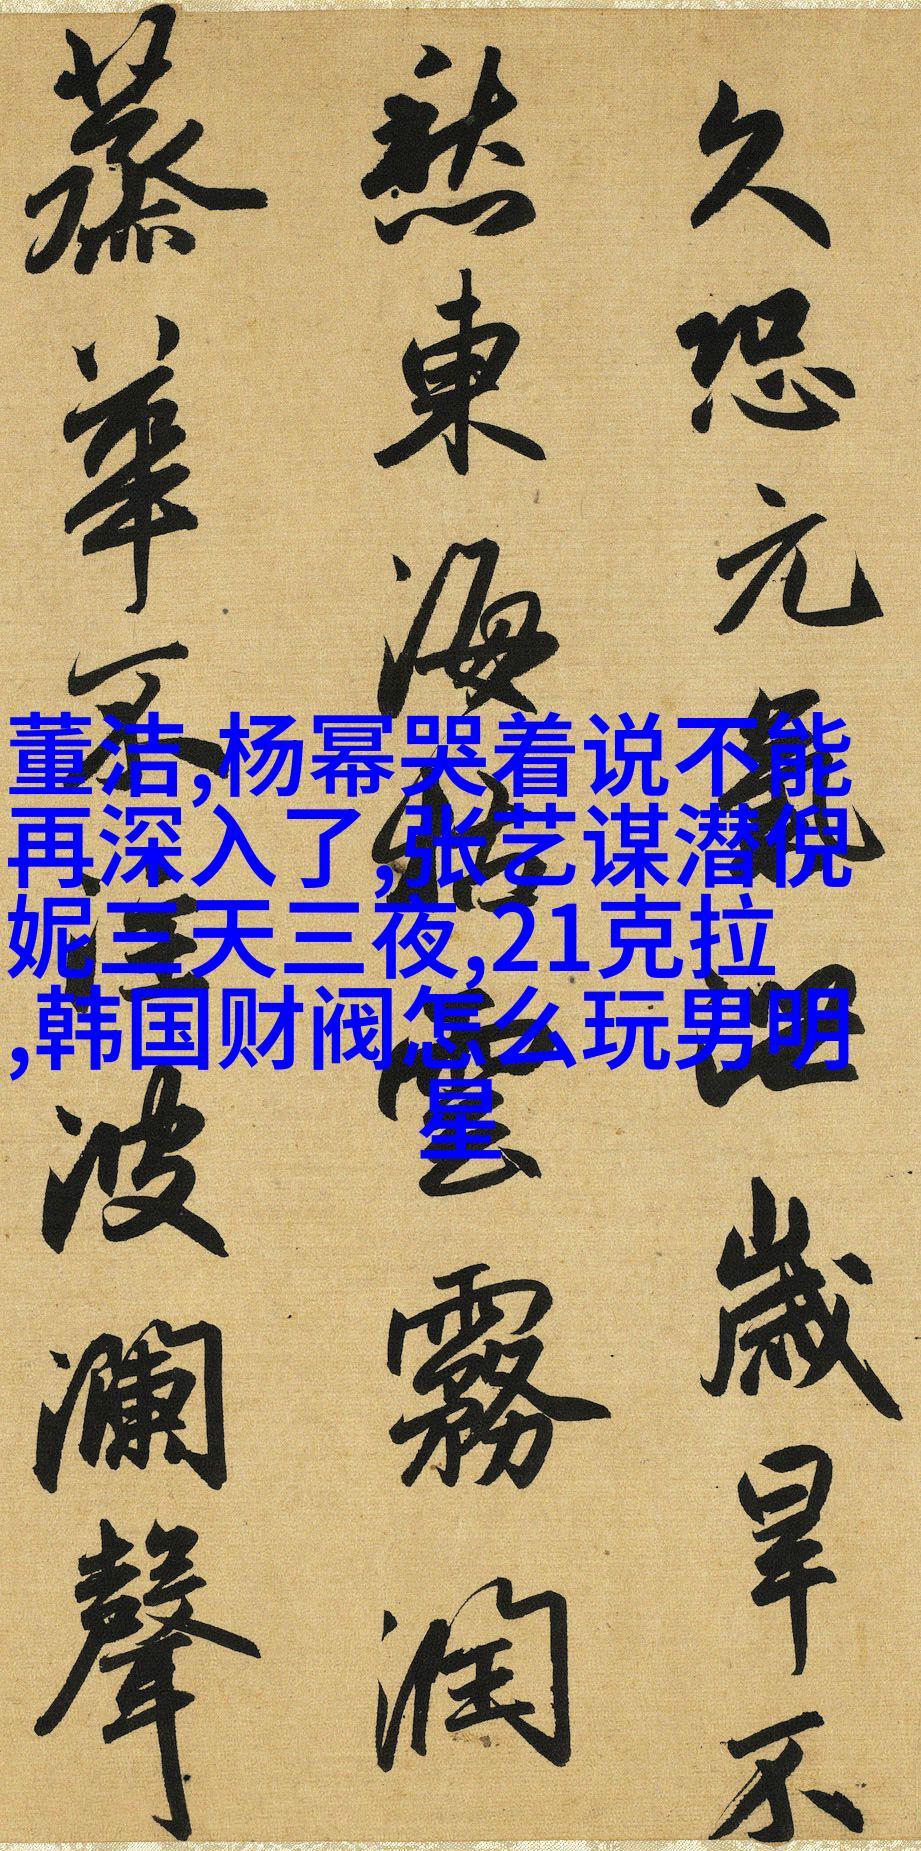 久恐元氣泄歲旱不
愁東海枯雲霧潤
蒸華不注波瀾聲
董洁,杨幂哭着说不能
再深入了,张艺谋潜倪
妮三天三夜,21克拉
,韩国财阀怎么玩男明
星